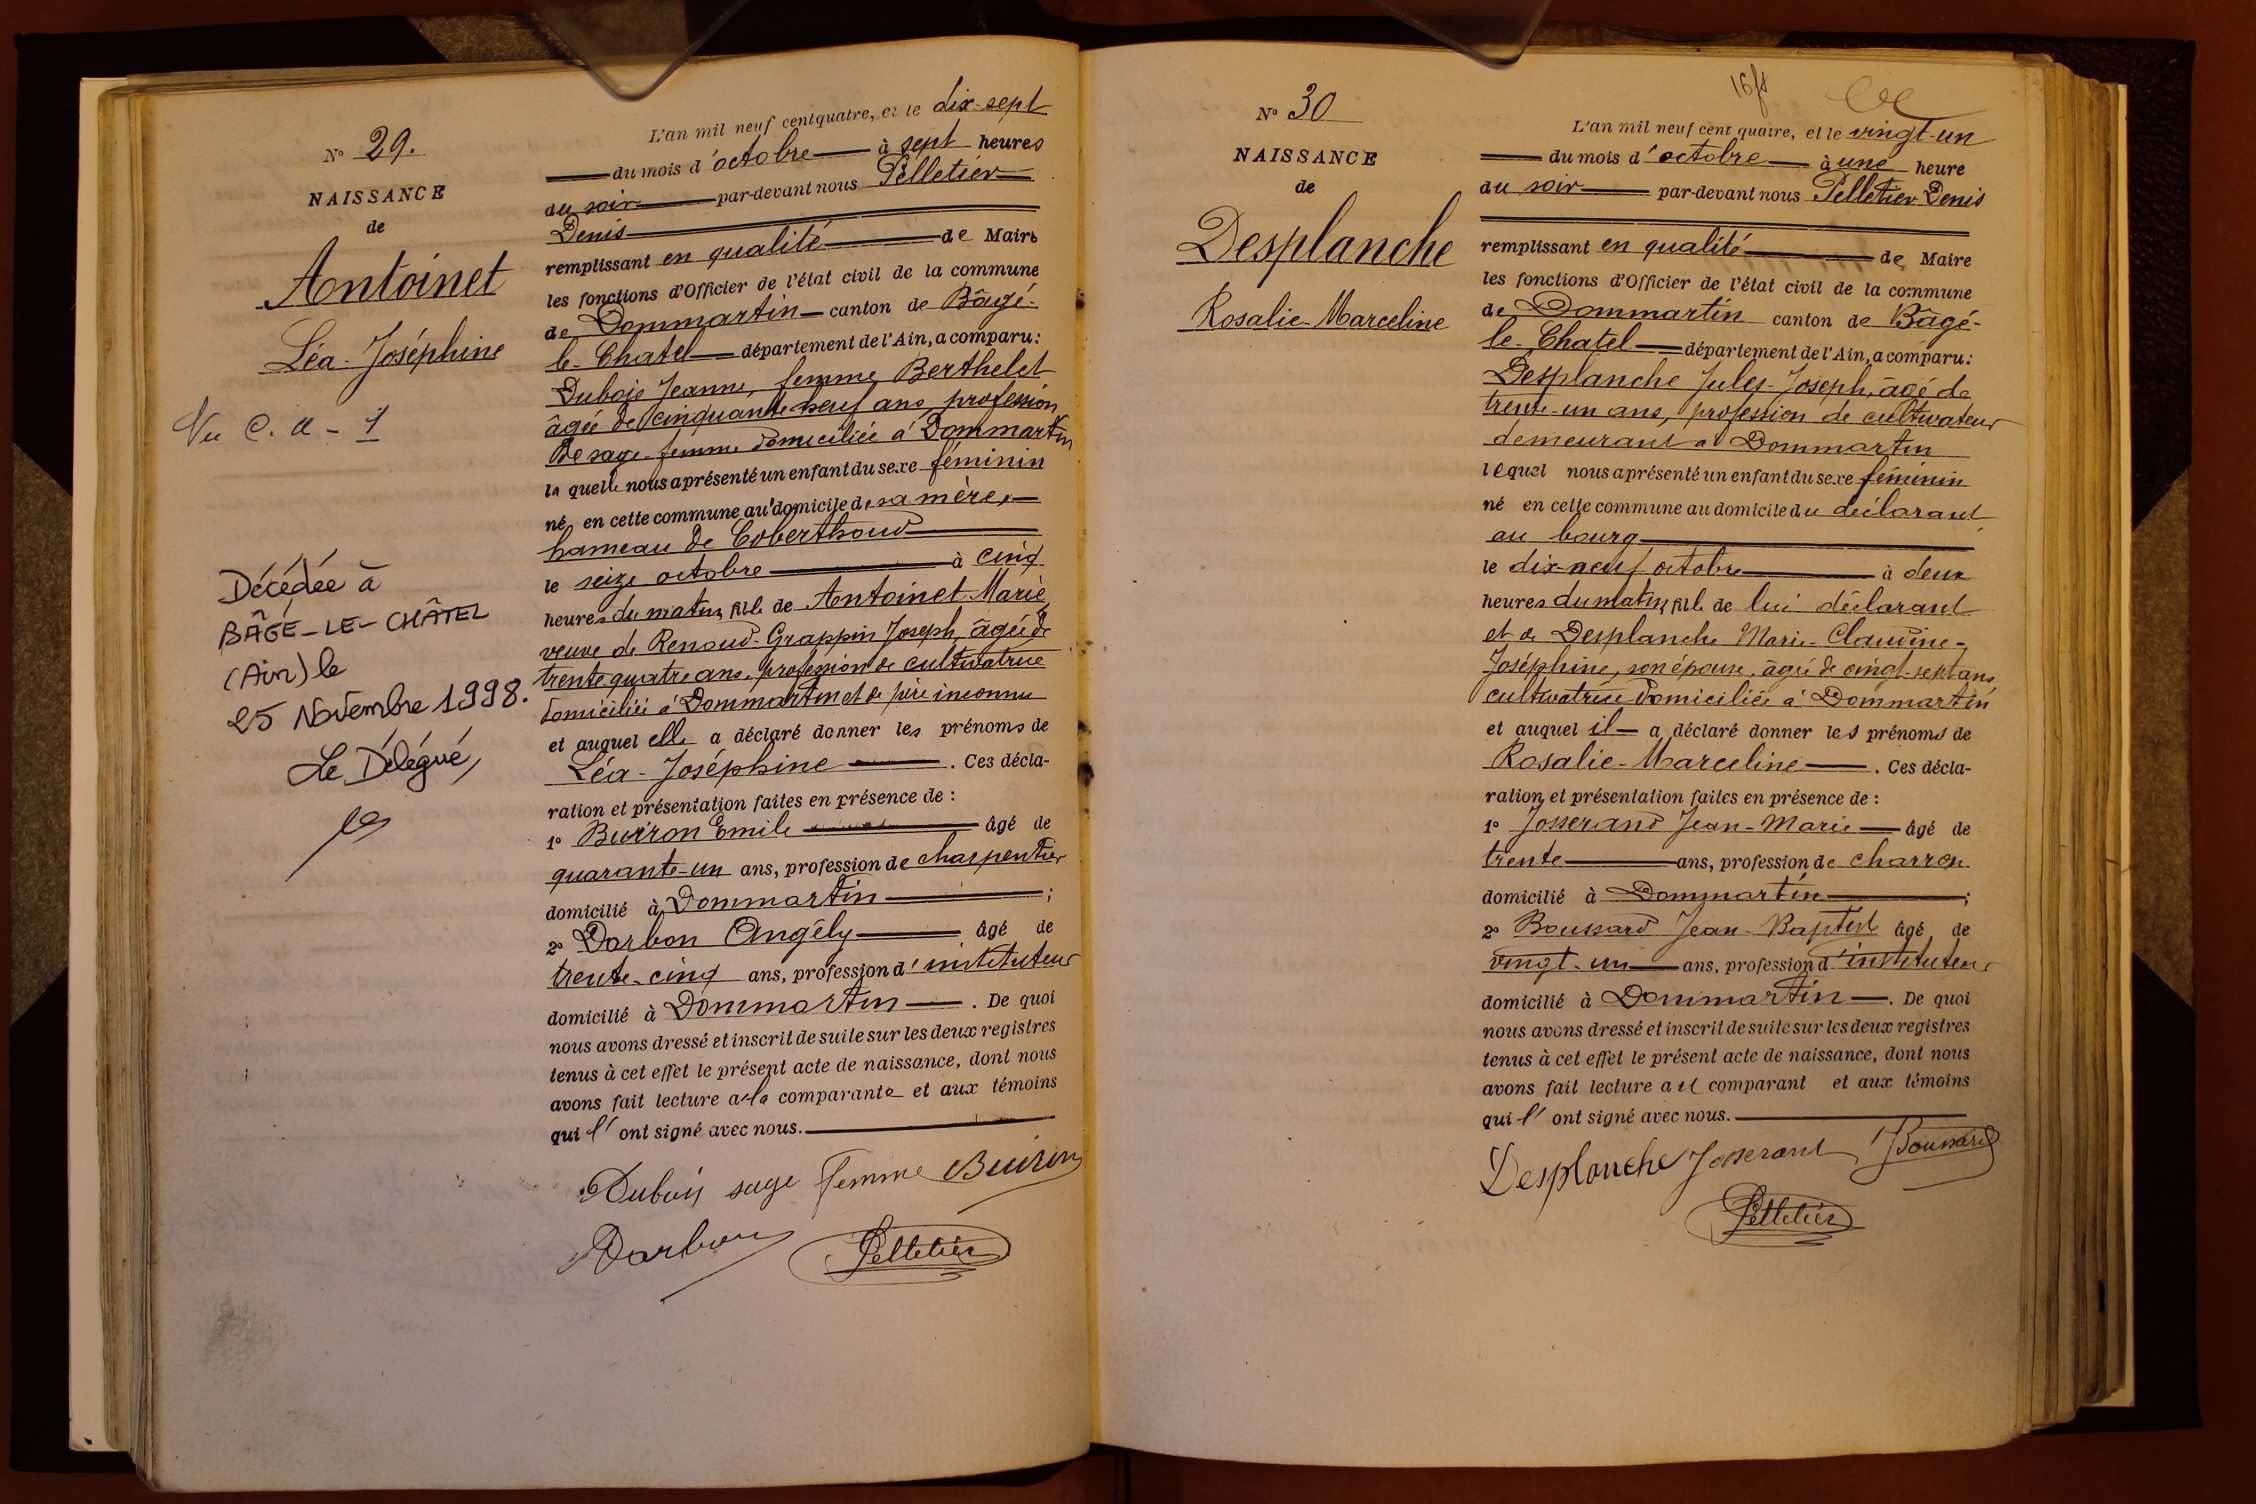 N° 29.
NAISSANCE
de
Antoinet
Léa-Joséphine
Vu C. a - 1
Décédée à
BÂGÉ-LE-CHÂTEL
(Ain) le
25 Novembre 1998.
Le Délégué,
L'an mil neuf cent quatre, et le dix-sept
du mois d'octobre à sept heures
du soir par-devant nous Pelletier
Denis
remplissant en qualité de Maire
les fonctions d'Officier de l'état civil de la commune
de Dommartin canton de Bâgé-
le-Chatel département de l'Ain, a comparu:
Dubois Jeanne femme Berthelet
âgée de cinquante neuf ans profession
de sage-femme domiciliée à Dommartin
laquelle nous a présenté un enfant du sexe féminin
né en cette commune au domicile de sa mère,
hameau de Coberthoud
le seize octobre à cinq
heures du matin, fille de Antoinet Marie
veuve de Renoud-Grappin Joseph, âgée de
trente quatre ans, profession de cultivatrice
domiciliée à Dommartin et de père inconnu
et auquel elle a déclaré donner les prénoms de
Léa-Joséphine. Ces décla-
ration et présentation faites en présence de :
1° Buiron Emile âgé de
quarante-un ans, profession de charpentier
domicilié à Dommartin ;
2° Darbon Angély âgé de
trente-cinq ans, profession d'instituteur
domicilié à Dommartin. De quoi
nous avons dressé et inscrit de suite sur les deux registres
tenus à cet effet le présent acte de naissance, dont nous
avons fait lecture à la comparante et aux témoins
qui l'ont signé avec nous.
Dubois sage femme Buiron
Darbon Pelletier
16 fs
N° 30
NAISSANCE
de
Desplanche
Rosalie-Marceline
L'an mil neuf cent quatre, et le vingt-un
du mois d'octobre à une heure
du soir par-devant nous Pelletier Denis
remplissant en qualité de Maire
les fonctions d'Officier de l'état civil de la commune
de Dommartin canton de Bâgé-
le-Chatel département de l'Ain, a comparu:
Desplanche Jules-Joseph, âgé de
trente-un ans, profession de cultivateur
demeurant à Dommartin
lequel nous a présenté un enfant du sexe féminin
né en cette commune au domicile du déclarant
au bourg
le dix-neuf octobre à deux
heures du matin, fille de lui déclarant
et de Desplanche Marie-Claudine-
Joséphine, son épouse, âgée de vingt-sept ans
cultivatrice domiciliée à Dommartin
et auquel il a déclaré donner les prénoms de
Rosalie-Marceline. Ces décla-
ration et présentation faites en présence de :
1° Josserand Jean-Marie âgé de
trente ans, profession de charron
domicilié à Dommartin ;
2° Boussard Jean-Baptist âgé de
vingt-un ans, profession d'instituteur
domicilié à Dommartin. De quoi
nous avons dressé et inscrit de suite sur les deux registres
tenus à cet effet le présent acte de naissance, dont nous
avons fait lecture au comparant et aux témoins
qui l'ont signé avec nous.
Desplanche Josserand Boussard
Pelletier